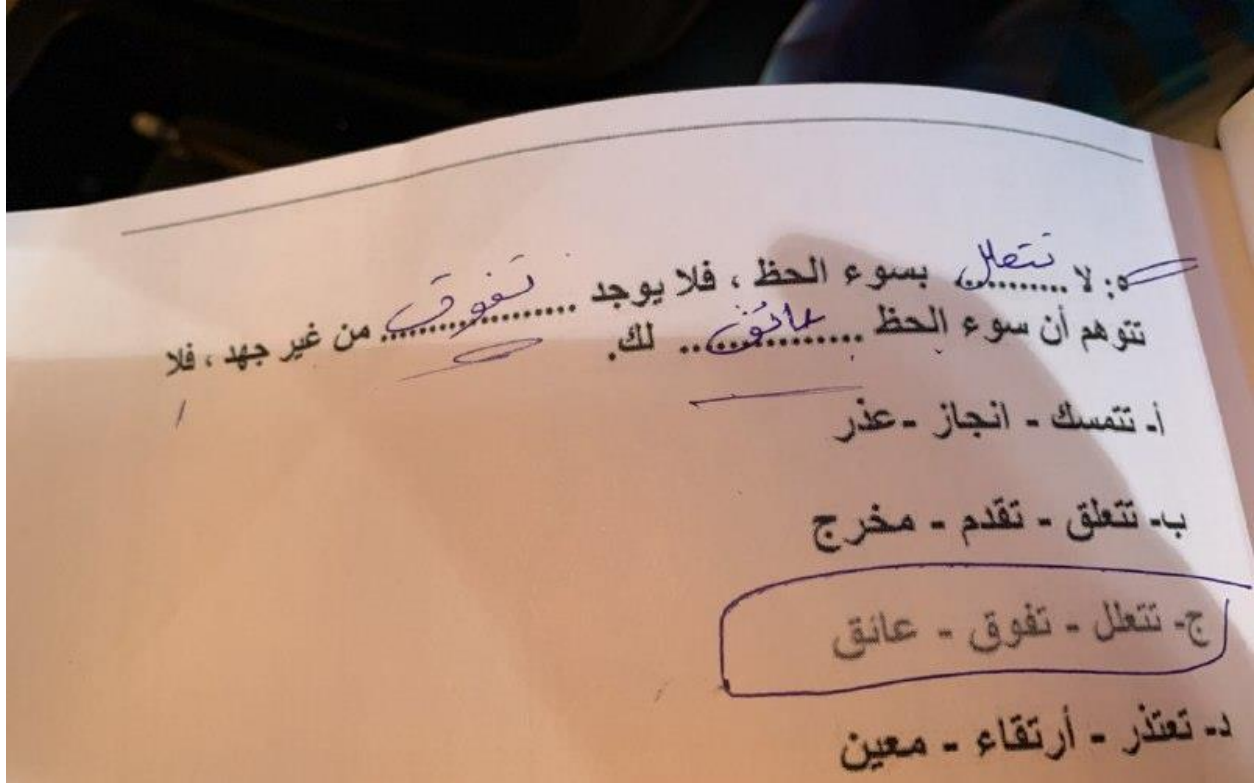 ٥: لا تتعلل بسوء الحظ ، فلا يوجد تفوق من غير جهد ، فلا
تتوهم أن سوء الحظ عائق لك.
أ- تتمسك - انجاز - عذر
ب- تتعلق - تقدم - مخرج
ج- تتعلل - تفوق - عائق
د- تعتذر - أرتقاء - معين